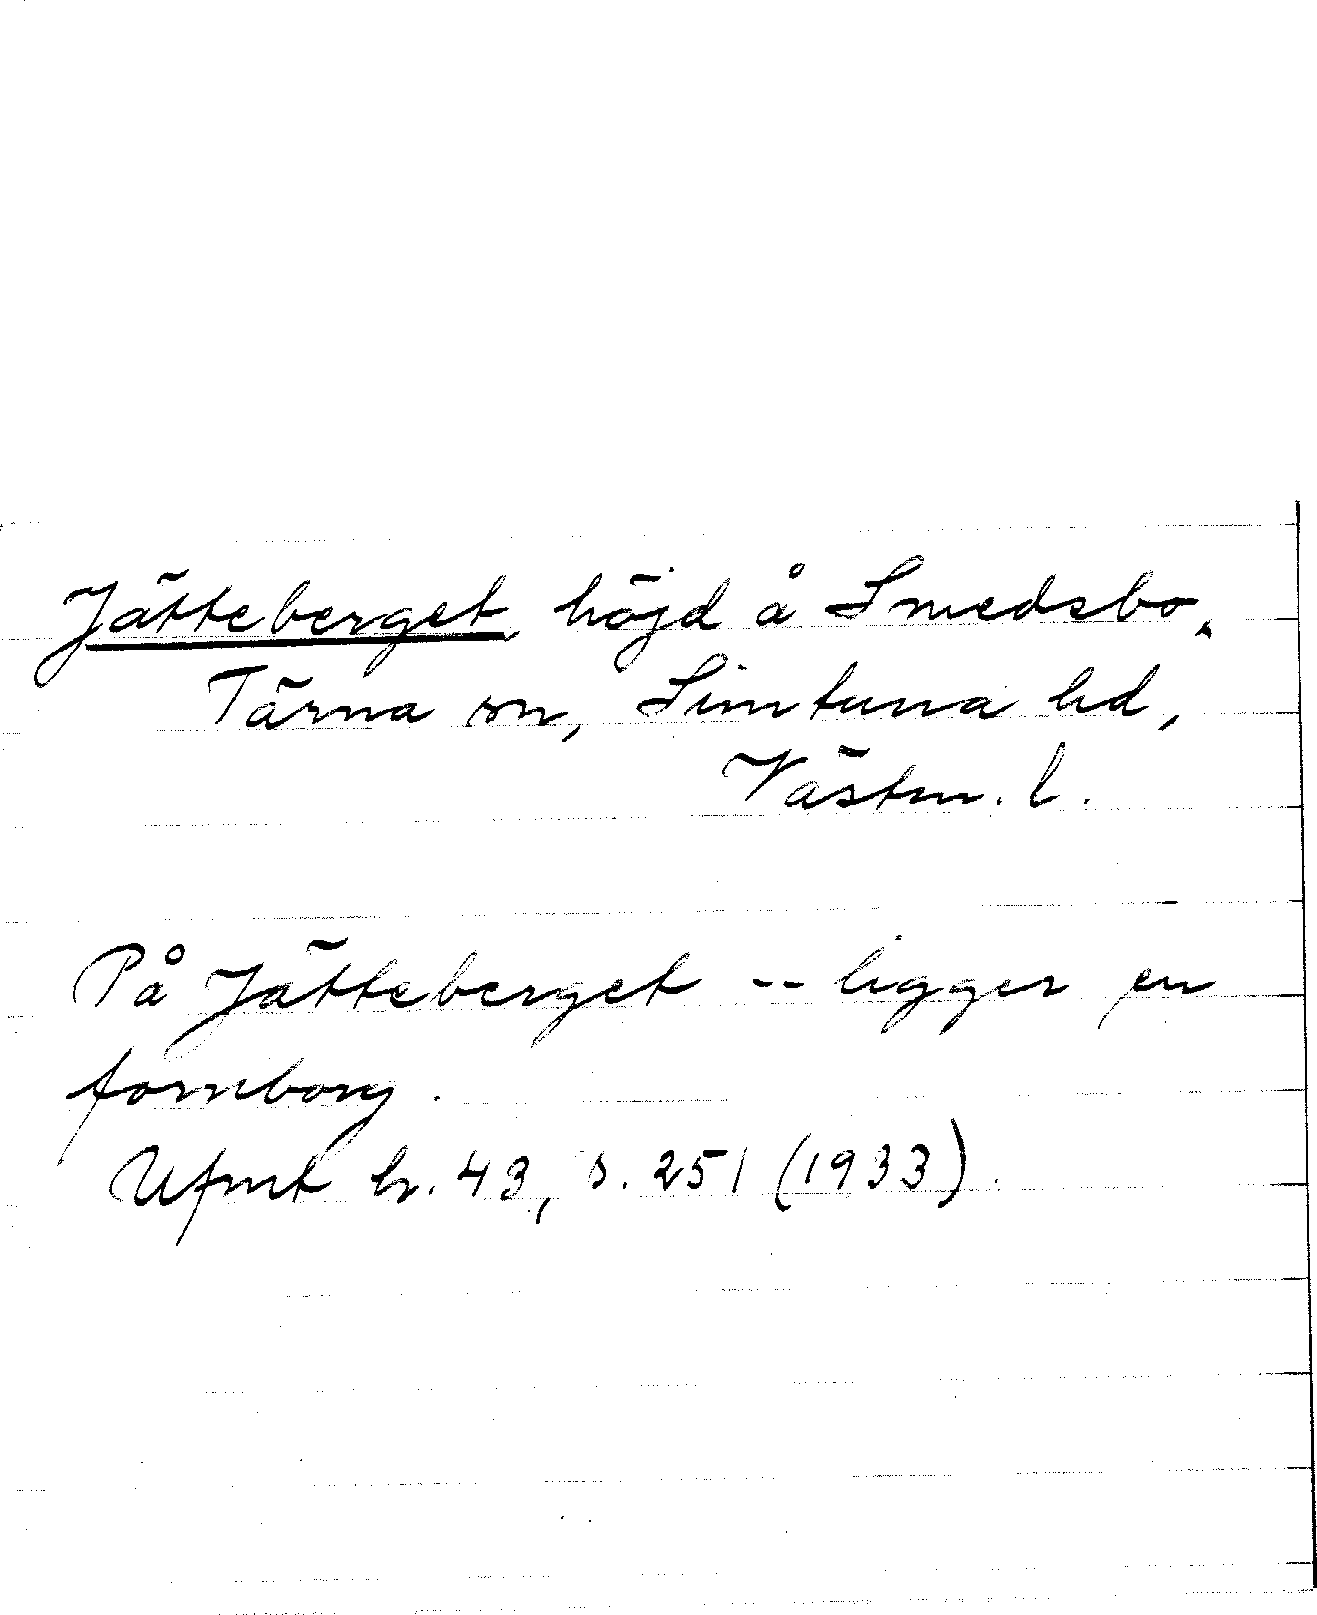 Jätteberget, höjd å Smedsbo,
Tärna sn, Simtuna hd,
Västm. l.
På Jätteberget -- ligger en
fornborg.
Ufmt h. 43, s. 251 (1933).